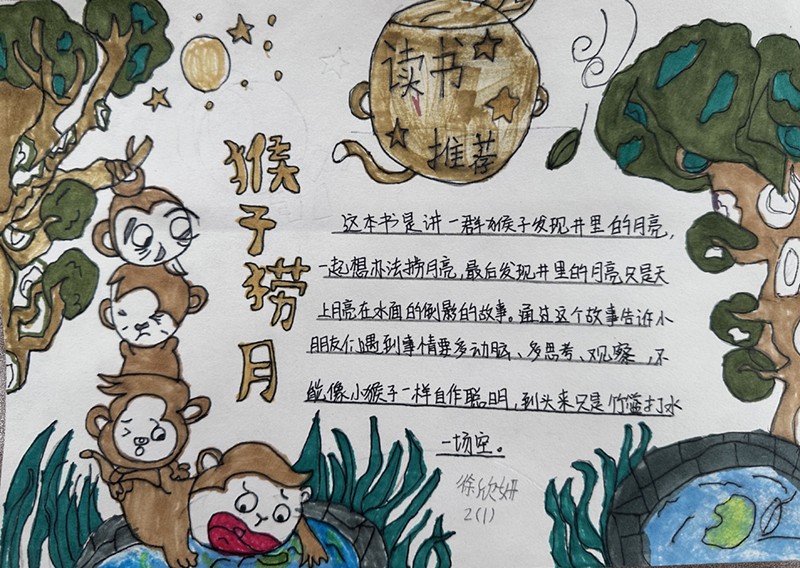 读书
推荐
猴子捞月
这本书是讲一群猴子发现井里的月亮，
一起想办法捞月亮，最后发现井里的月亮只是天
上月亮在水面的倒影的故事。通过这个故事告诉小
朋友们遇到事情要多动脑、多思考、观察，不
能像小猴子一样自作聪明，到头来只是竹篮打水
一场空。
徐欣妍
2(1)